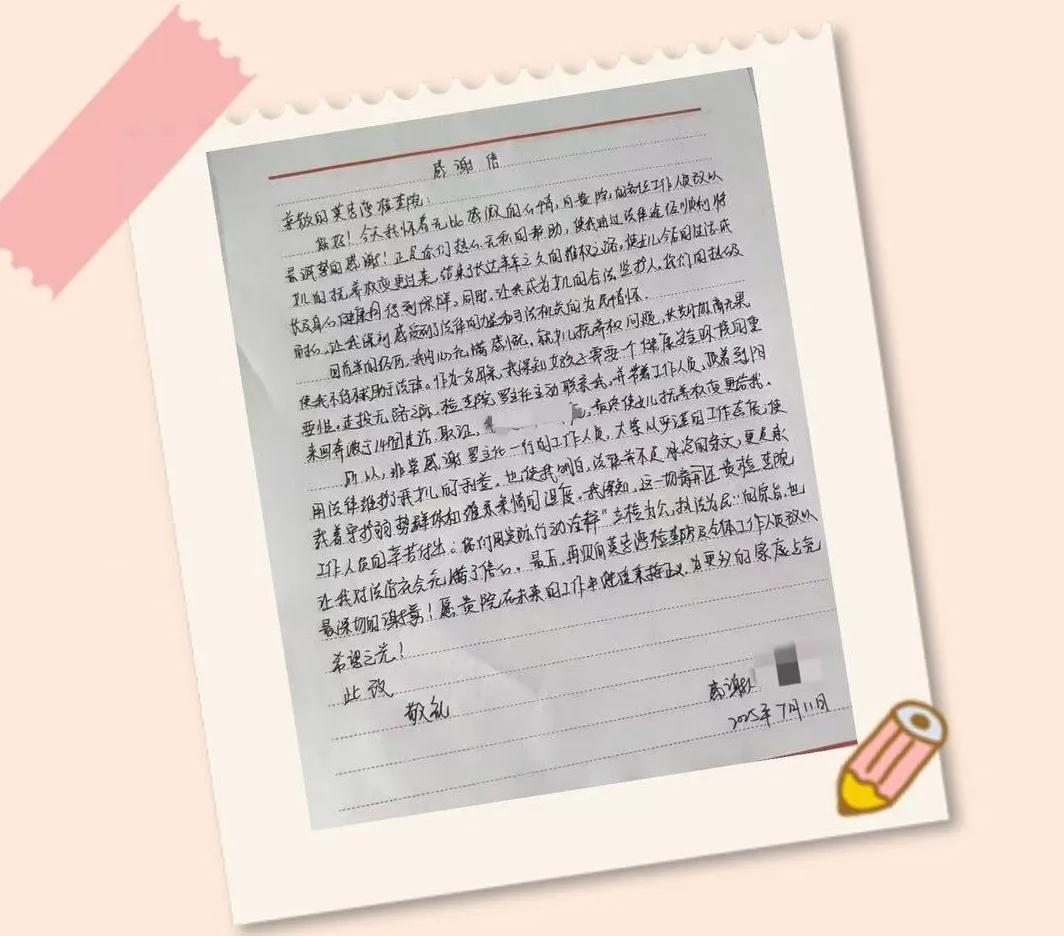 感谢信
尊敬的莫愁湾检查院:
您好!今天我怀着无比感激的心情,向贵院的各位工作人员致以
最诚挚的感谢!正是你们热心无私的帮助,使我通过法律途径顺利将
女儿的抚养权变更过来,结束了长达半年之久的维权之路,使女儿今后的生活成
长及身心健康得到保障。同时,让我成为女儿的合法监护人。我们的热级
耐心,让我深刻感受到了法律的力量和司法机关的为民情怀。
回首半年的经历,我内心充满感慨,就女儿抚养权问题,长期协商无果
使我不得不求助于法律。作为一名母亲,我深知女孩子需要一个健康安全环境的重
要性。走投无路之际,检查院罗主任主动联系我,并带着工作人员,跟着到阳
来回奔波于14个走访、取证,最终使女儿抚养权变更给我。
所以,非常感谢罗主任一行的工作人员,大荣以严谨的工作态度,使
用法律维护了我女儿的利益。也使我明白,法律并不是冰冷的条文,更是承
载着守护弱势群体和维系亲情的温度。我深知,这一切背后还贵检查院
工作人员的辛苦付出。你们用实际行动诠释"立检为公,执法为民"的宗旨,也
让我对法治社会充满了信心。最后,再次向莫愁湾检查院及全体工作人员致以
最深切的谢意!愿贵院在未来的工作中继续秉持正义,为更多的家庭点亮
希望之光!
此致
敬礼
感谢人
2025年7月11日